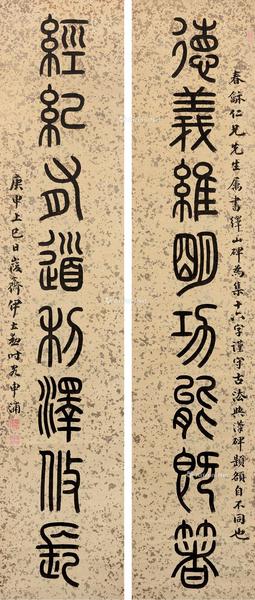 春龢仁兄先生屬書繹山碑為集十六字謹守古法與漢碑題額自不同也
德義維明功能既箸
經紀有道利澤攸長
庚申上巳日峻齋伊立勳時客申浦